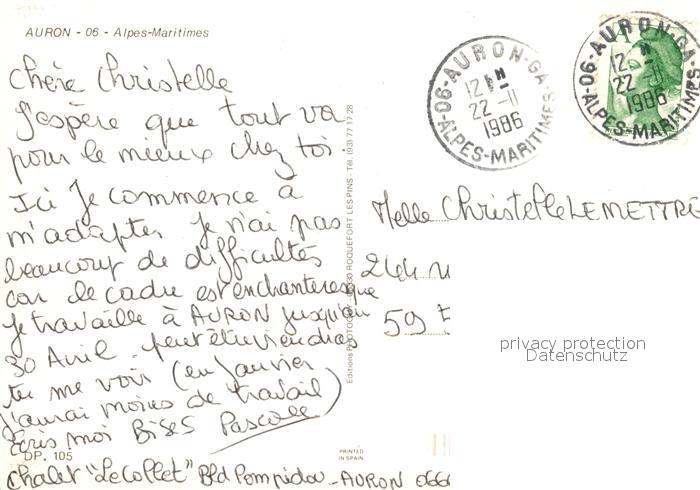 AURON - 06 - Alpes-Maritimes
Chère Christelle
J'espère que tout va
pour le mieux chez toi
Ici je commence à
m'adapter je n'ai pas
beaucoup de difficultés
car le cadre est enchanteresque
je travaille à AURON jusqu'au
30 Avril. peut être viendras
tu me voir (en Janvier
j'aurai moins de travail)
Ecris moi BISES Pascale
DP. 105
Chalet "Le Collet" Bld Pompidou - AURON 066
Editions PHOTOGUY ROQUEFORT LES PINS - Tél. (93) 77 17 28
PRINTED
IN SPAIN
06-AURON-GA-
12 H
22 -11
1986
ALPES-MARITIMES
06-AURON-GA-
12 H
22 -11
1986
ALPES-MARITIMES
Melle Christelle LEMETTRE
244
59
privacy protection
Datenschutz